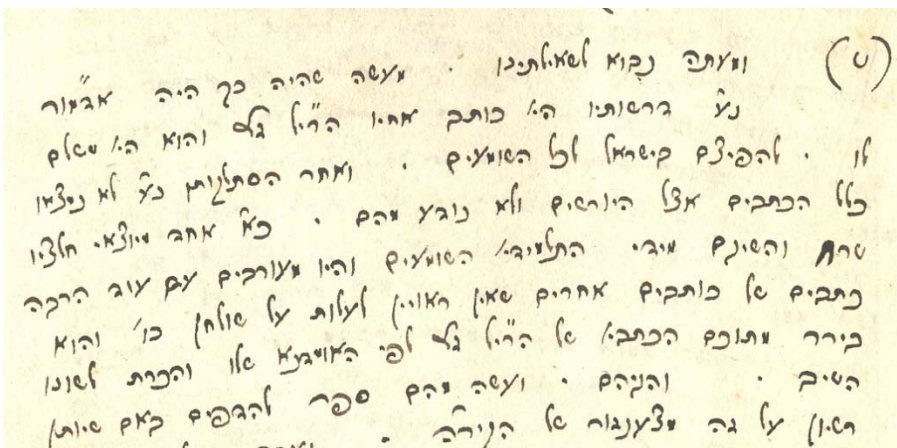 (ט) ומעתה נבוא לשאילתינו . מעשה שהיה כך היה אדמו"ר
נ"ע דרשותיו הי' כותב אחיו הרי"ל ג"ע והוא הי' משלם
לו . להפיצם בישראל לכל השומעים . ואחר הסתלקותו נ"ע לא נמצאו
כלל הכתבים אצל היורשים ולא נודע מהם . כ"א אחד מיוצאי חלציו
טרח והשיגם מידי התלמידי' השומעים והיו מעורבים עם עוד הרבה
כתבים של כותבים אחרים שאין ראויין לעלות על שולחן כו' והוא
בירר מתוכם הכתבי' של הרי"ל ג"ע לפי האומדנא שלו והכרת לשונו
היטיב . והגיהם . ועשה מהם ספר להדפיס באם שיותן
רשיון על זה מצענזור של הקיר"ה .